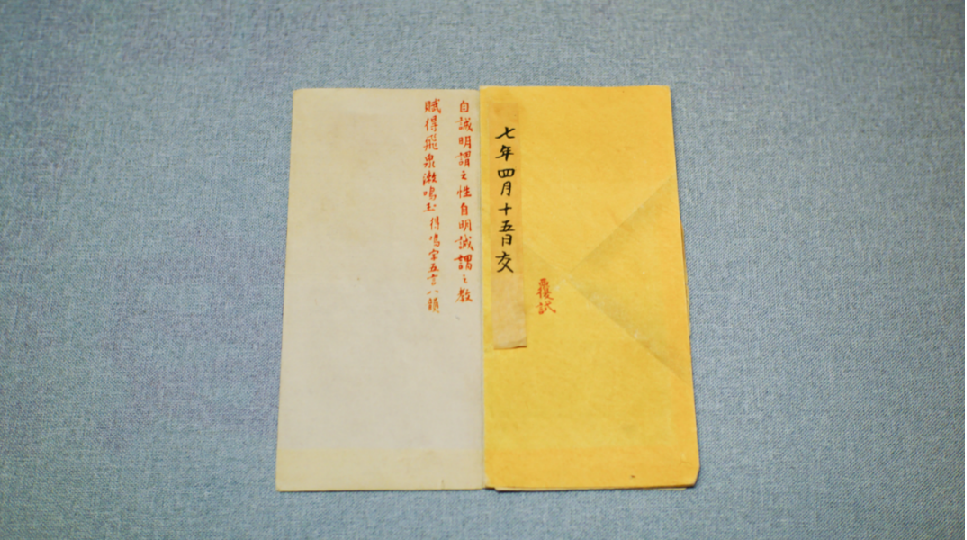 覆試
七年四月十五日交
自誠明謂之性自明誠謂之教
賦得飛泉漱鳴玉得鳴字五言八韻